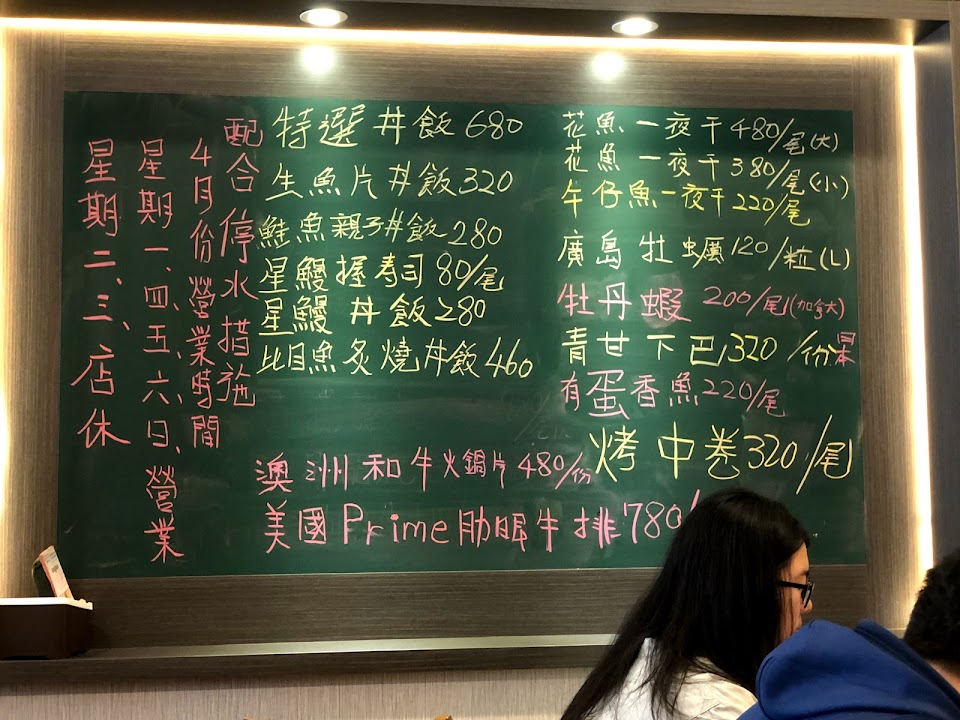 配合停水措施
4月份營業時間
星期一、四、五、六、日、營業
星期二、三、店休
特選丼飯680
生魚片丼飯320
鮭魚親子丼飯280
星鰻握壽司80/尾
星鰻丼飯280
比目魚炙燒丼飯460
花魚一夜干480/尾(大)
花魚一夜干380/尾(小)
午仔魚一夜干220/尾
廣島牡蠣120/粒(L)
牡丹蝦200/尾(加拿大)
青甘下巴320/份
有蛋香魚220/尾
烤中卷320/尾
澳洲和牛火鍋片480/份
美國Prime肋眼牛排780/